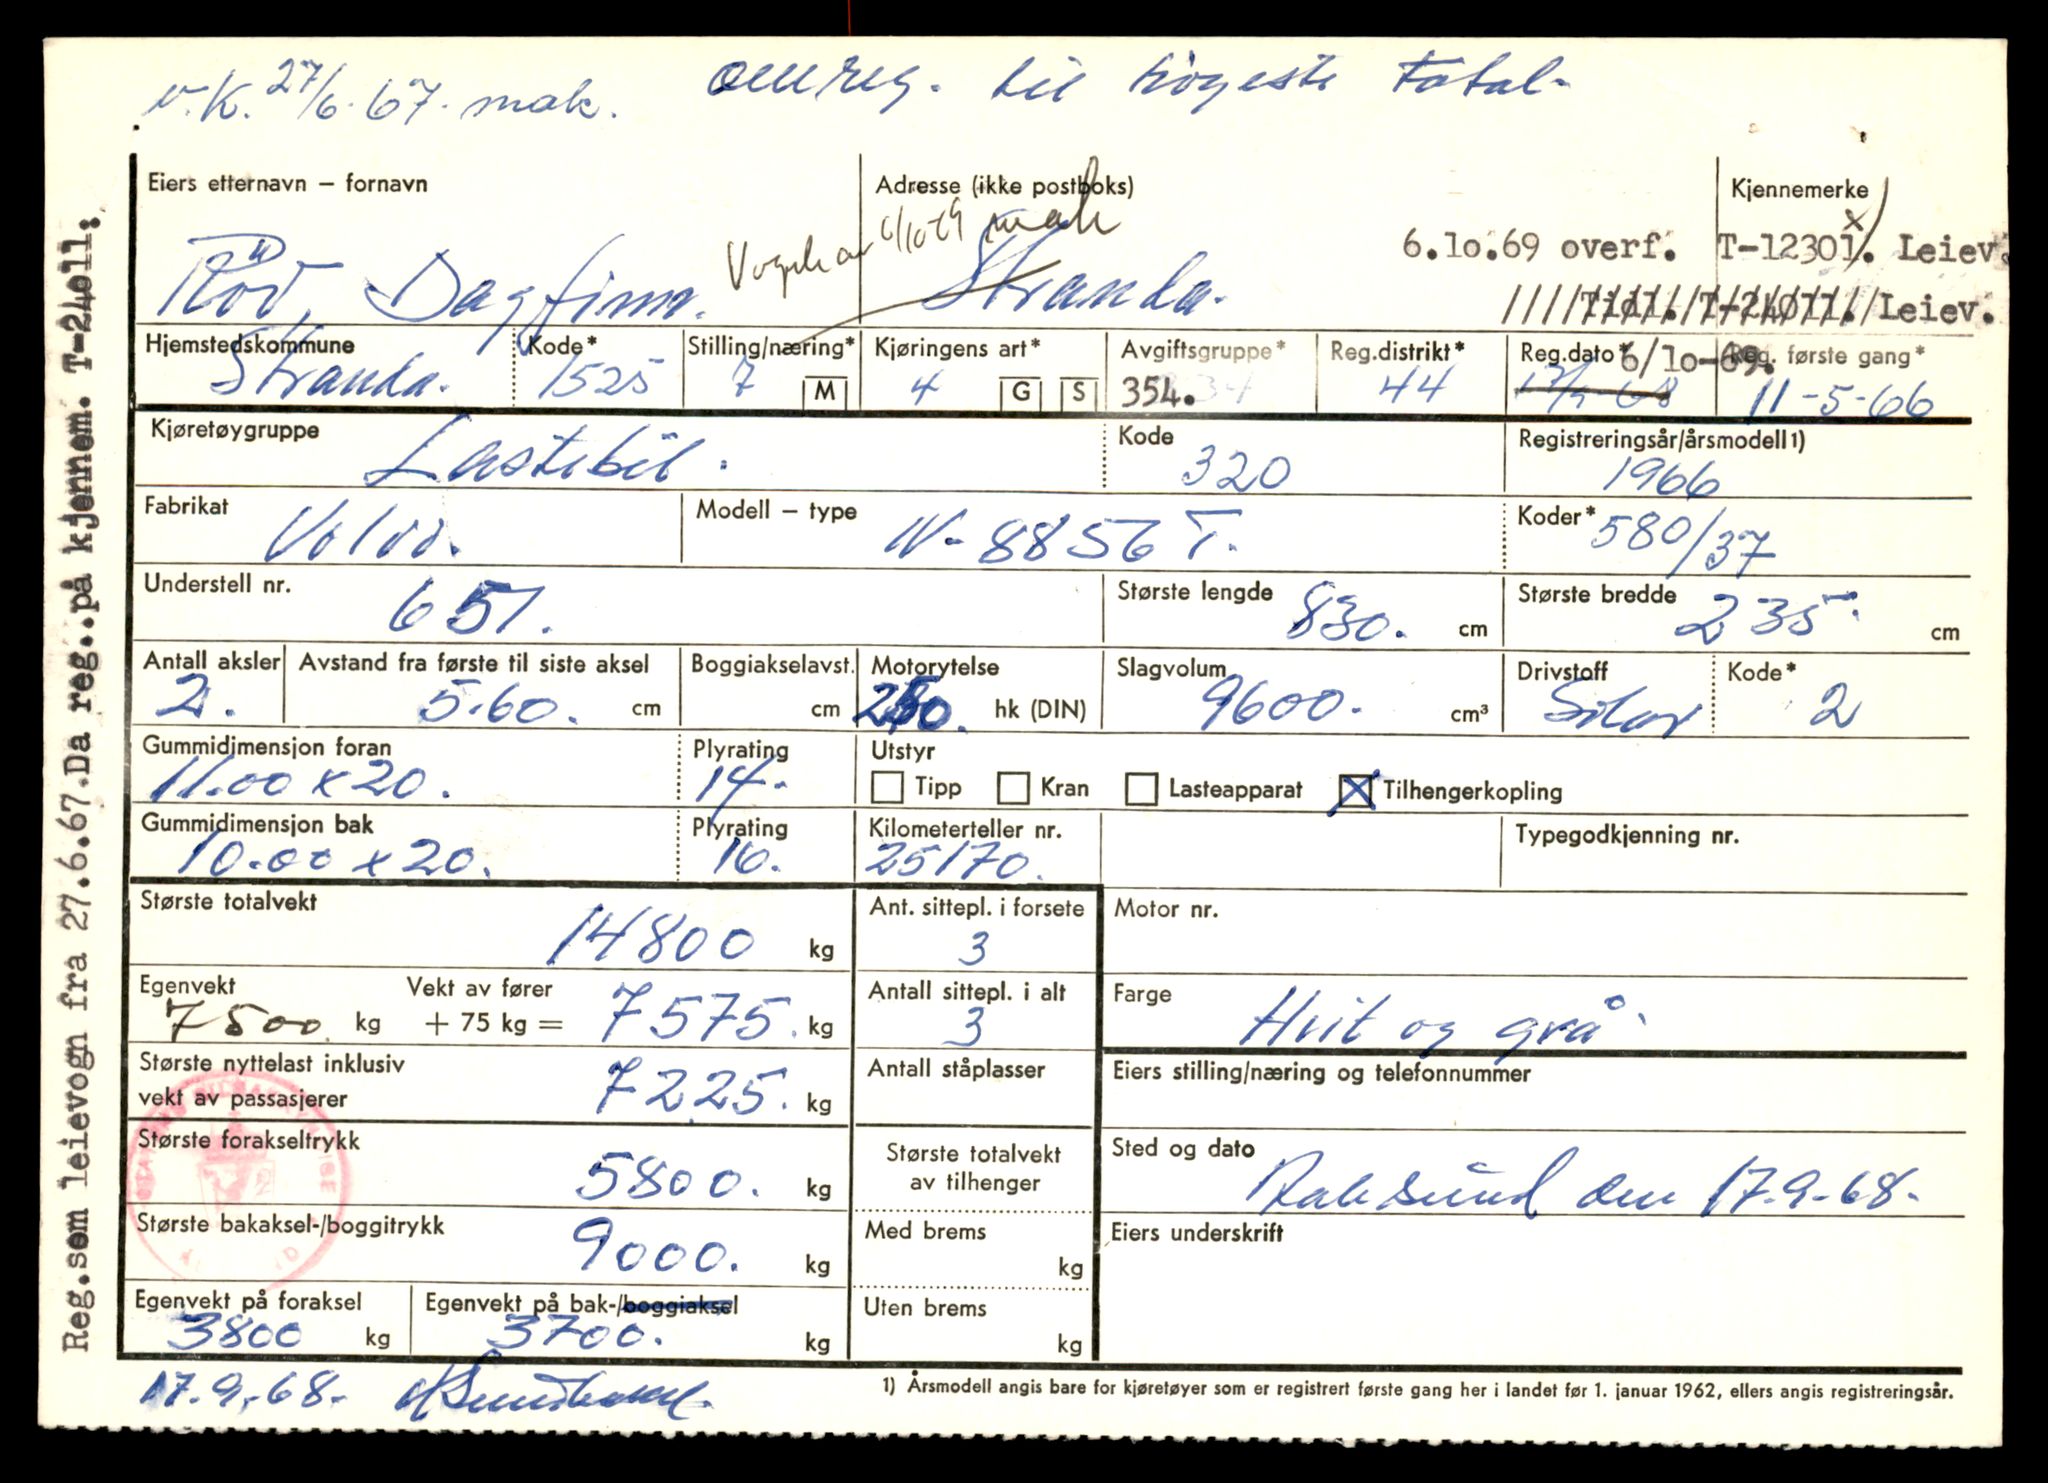 v.K. 27/6.67. mak. omreg. til høgeste total-
Eiers etternavn – fornavn
Adresse (ikke postboks)
Kjennemerke
6/10-69 mak
6.10.69 overf. T-12301. Leiev.
Dagfinn. Stranda.
Tidl. T-24011. Leiev.
Hjemstedskommune Stranda.
Kode* 1525
Stilling/næring* 7 M
Kjøringens art* 4 G S
Avgiftsgruppe* 354.
Reg.distrikt* 44
Reg.dato* 6/10-69.
Reg. første gang* 11-5-66
Kjøretøygruppe Lastebil.
Kode 320
Registreringsår/årsmodell1) 1966
Fabrikat Volvo.
Modell – type N-8856 T.
Koder* 580/37
Understell nr. 651.
Største lengde 830. cm
Største bredde 235. cm
Antall aksler 2.
Avstand fra første til siste aksel 5.60. cm
Boggiakselavst. cm
Motorytelse hk (DIN)
Slagvolum 9600. cm³
Drivstoff Solar
Kode* 2
Gummidimensjon foran 11.00 x 20.
Plyrating 14.
Utstyr
Tipp Kran Lasteapparat Tilhengerkopling
Gummidimensjon bak 10.00 x 20.
Plyrating 16.
Kilometerteller nr. 25170.
Typegodkjenning nr.
Største totalvekt 14800 kg
Ant. sittepl. i forsete 3
Motor nr.
Egenvekt 7500 kg
Vekt av fører + 75 kg = 7575. kg
Antall sittepl. i alt 3
Farge Hvit og grå.
Største nyttelast inklusiv
vekt av passasjerer 7225. kg
Antall ståplasser
Eiers stilling/næring og telefonnummer
Største forakseltrykk 5800. kg
Største totalvekt
av tilhenger
Sted og dato den 17.9.-68.
Største bakaksel-/boggitrykk 9000. kg
Med brems kg
Eiers underskrift
Egenvekt på foraksel 3800 kg
Egenvekt på bak-/boggiaksel 3700. kg
Uten brems kg
17.9.-68.
1) Årsmodell angis bare for kjøretøyer som er registrert første gang her i landet før 1. januar 1962, ellers angis registreringsår.
Reg.som leievogn fra 27.6.67.Da reg..på kjennem. T-24011.